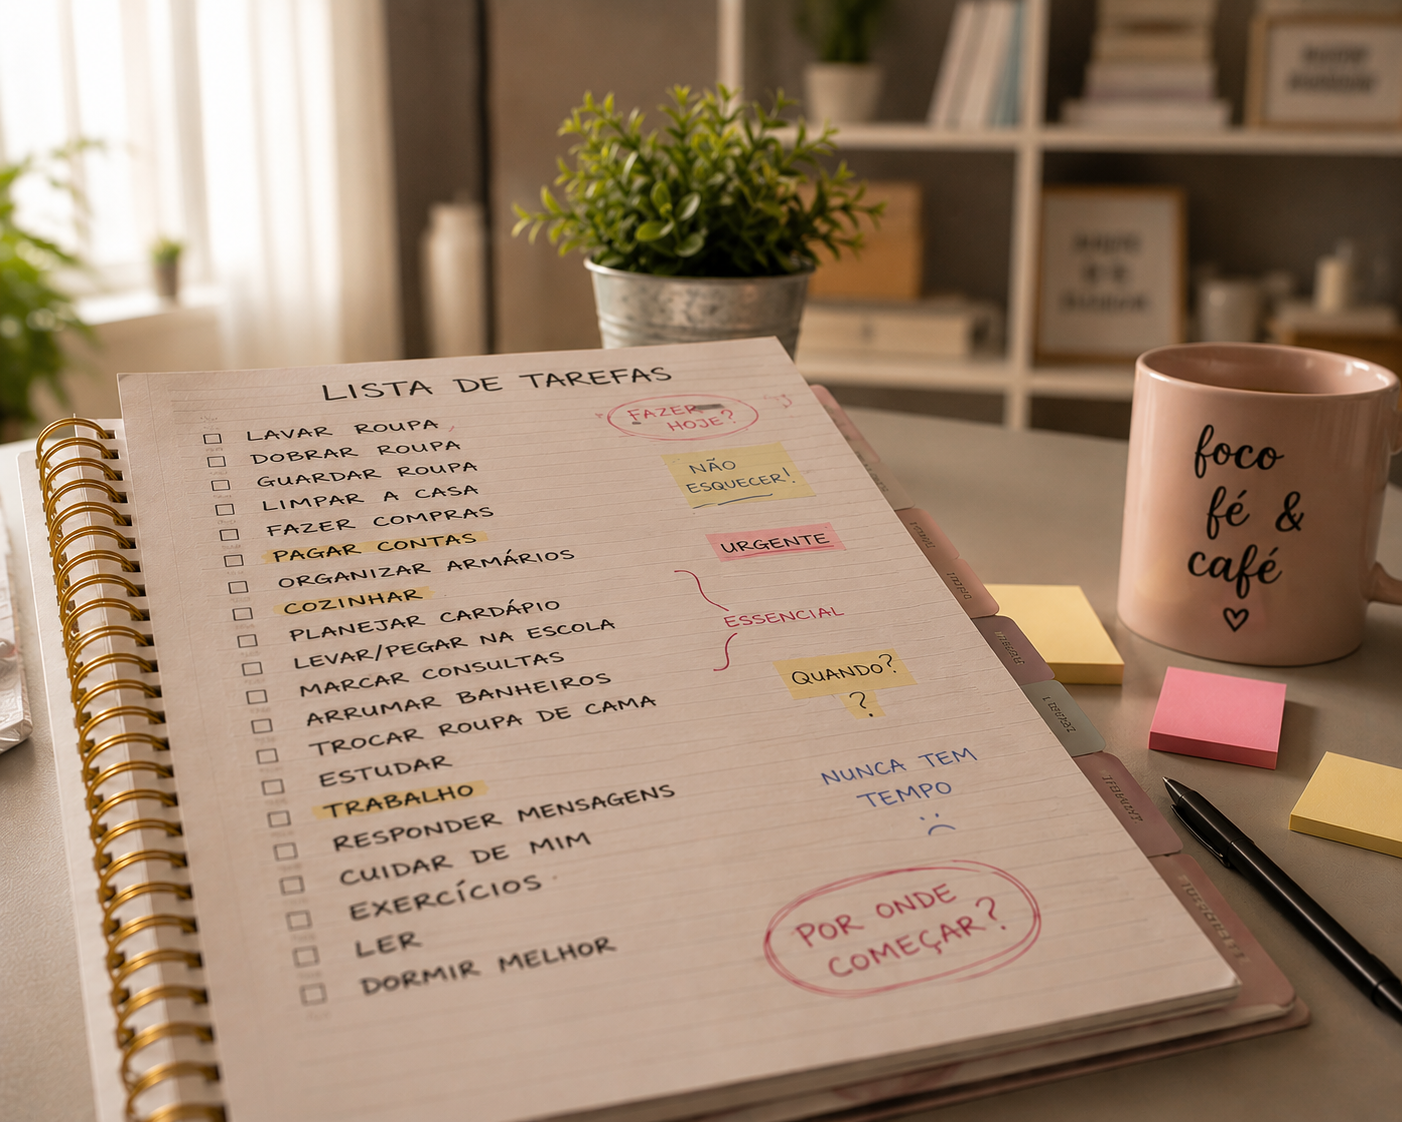 LISTA DE TAREFAS
LAVAR ROUPA
DOBRAR ROUPA
GUARDAR ROUPA
LIMPAR A CASA
FAZER COMPRAS
PAGAR CONTAS
ORGANIZAR ARMÁRIOS
COZINHAR
PLANEJAR CARDÁPIO
LEVAR/PEGAR NA ESCOLA
MARCAR CONSULTAS
ARRUMAR BANHEIROS
TROCAR ROUPA DE CAMA
ESTUDAR
TRABALHO
RESPONDER MENSAGENS
CUIDAR DE MIM
EXERCÍCIOS
LER
DORMIR MELHOR
FAZER
HOJE?
NÃO
ESQUECER!
URGENTE
ESSENCIAL
QUANDO?
?
NUNCA TEM
TEMPO
POR ONDE
COMEÇAR?
foco
fé &
café